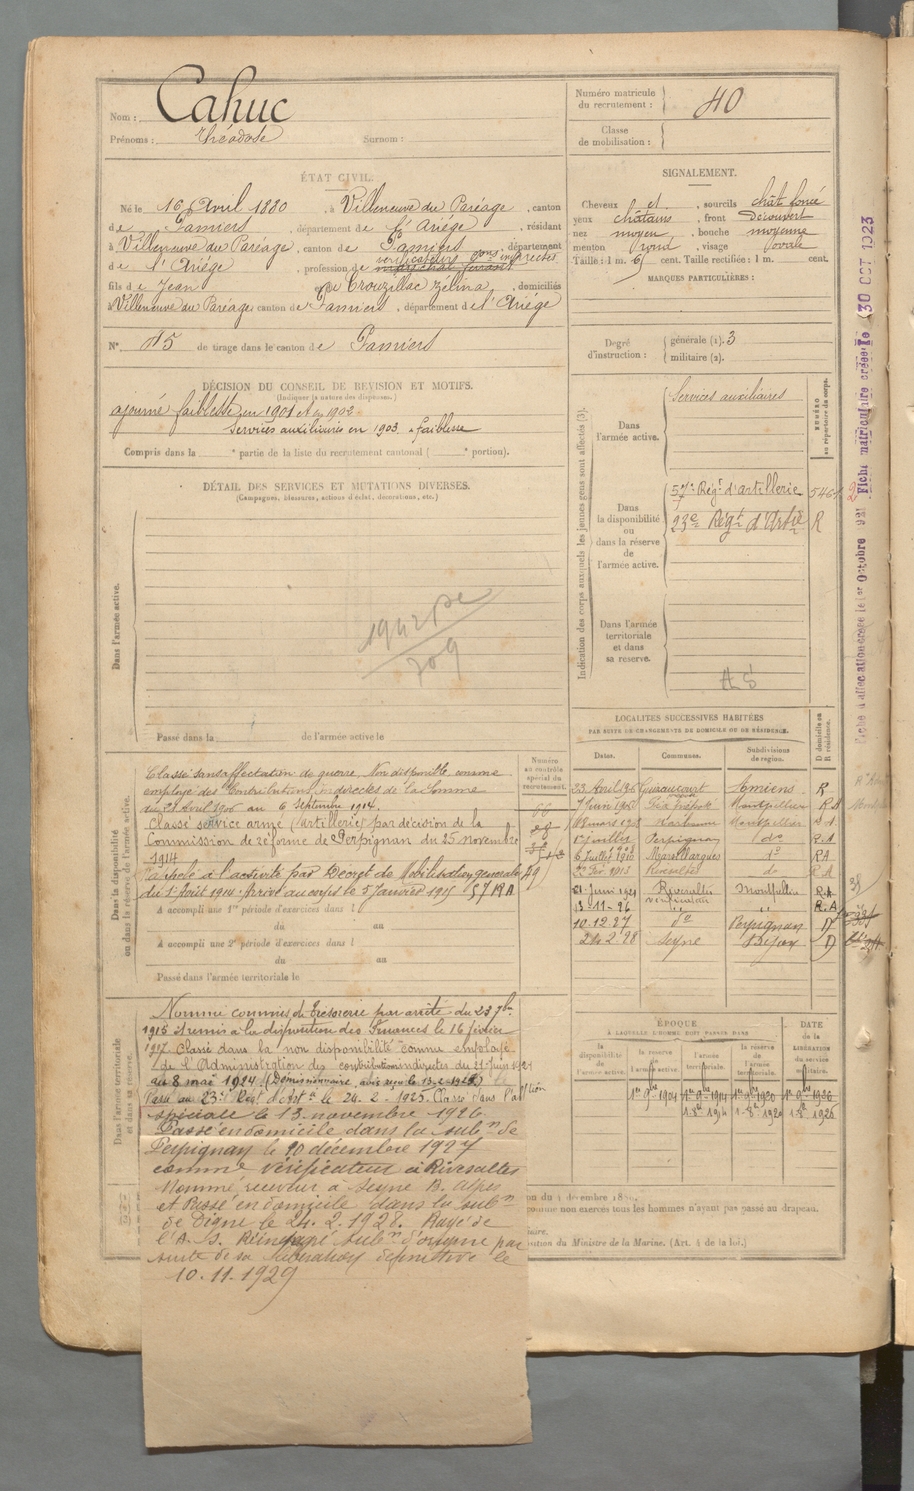 Nom : Cahuc
Prénoms : Théodose Surnom :
Numéro matricule du recrutement : 40
Classe de mobilisation :
ÉTAT CIVIL.
Né le 16 Avril 1880, à Villeneuve du Paréage, canton
de Pamiers, département de l'Ariège, résidant
à Villeneuve du Paréage, canton de Pamiers, département
de l'Ariège, profession de maréchal ferrant
fils de Jean et de Crouzillac Zélina, domiciliés
à Villeneuve du Paréage canton de Pamiers, département de l'Ariège
N° 45 de tirage dans le canton de Pamiers
SIGNALEMENT.
Cheveux et, sourcils chât foncé
yeux châtains, front Découvert
nez moyen, bouche moyenne
menton rond, visage ovale
Taille : 1 m. 61 cent. Taille rectifiée : 1 m. cent.
MARQUES PARTICULIÈRES :
Degré d'instruction : générale (1). 3
militaire (2).
DÉCISION DU CONSEIL DE REVISION ET MOTIFS.
(Indiquer la nature des dispenses.)
ajourné faiblesse en 1901 et en 1902
Services auxiliaires en 1903 - faiblesse
Compris dans la e partie de la liste du recrutement cantonal ( e portion).
DÉTAIL DES SERVICES ET MUTATIONS DIVERSES.
(Campagnes, blessures, actions d'éclat, décorations, etc.)
Dans l'armée active.
Passé dans la de l'armée active le
Indication des corps auxquels les jeunes gens sont affectés (3).
Dans l'armée active.
Services auxiliaires
NUMÉRO au répertoire du corps.
Dans la disponibilité ou dans la réserve de l'armée active.
57e Régt d'artillerie
23e Régt d'Artie R
Dans l'armée territoriale et dans sa réserve.
Fiche d'affectation créée le 1er Octobre 1921 Fiche matriculaire créée le 30 OCT 1923
LOCALITÉS SUCCESSIVES HABITÉES
PAR SUITE DE CHANGEMENTS DE DOMICILE OU DE RÉSIDENCE.
Dates. Communes. Subdivisions de région. D domicile ou R résidence.
Amiens R
Montpellier
Narbonne Montpellier
Perpignan do R.A
6 Juillet 1910 Marsillargues do RA
Rivesaltes do R A
21 Juin 1921 Rivesaltes Montpellier R.A
13-11-26 R.A
10.12.27 do Perpignan D
24.2.28 Seyne D
Numéro au contrôle spécial du recrutement.
Dans la disponibilité ou dans la réserve de l'armée active.
Classé sans affectation de guerre. Non disponible comme
employé des Contributions indirectes de la Somme
du 23 Avril 1906 au 6 Septembre 1914.
Classé service armé (artillerie) par décision de la
Commission de réforme de Perpignan du 25 novembre
1914
Rappelé à l'activité par Décret de Mobilisation générale
du 1er Août 1914. Arrivé au corps le 5 Janvier 1915 57 RA
A accompli une 1re période d'exercices dans l
du au
A accompli une 2e période d'exercices dans l
du au
Passé dans l'armée territoriale le
Dans l'armée territoriale et dans sa réserve.
Nommé commis de trésorerie par arrêté du 23 7bre
1915 et remis à la disposition des Finances le 16 février
1917 Classé dans la non disponibilité comme employé
de l'Administration des contributions indirectes du 21 juin 1921
au 8 mai 1924 (Démissionnaire, avis reçu le 13-2-1925)
Passé au 23e Régt d'Artie le 24. 2. 1925. Classé dans l'affection
spéciale le 13 novembre 1926.
Passé en domicile dans la subon de
Perpignan le 10 décembre 1927
comme vérificateur à Rivesaltes
Nommé receveur à Seyne B. Alpes
et Passé en domicile dans la subon
de Digne le 24. 2. 1928. Rayé de
l'A. S. Réintégré subon d'origine par
suite de sa libération définitive le
10.11.1929
ÉPOQUE
À LAQUELLE L'HOMME DOIT PASSER DANS
la disponibilité de l'armée active. la réserve de l'armée active. l'armée territoriale. la réserve de l'armée territoriale.
DATE de la LIBÉRATION du service militaire.
1er 9bre 1904 1er 9bre 1914 1er 9bre 1920 1er 9bre 1930
on du 4 décembre 18
comme non exercés tous les hommes n'ayant pas passé au drapeau.
ution du Ministre de la Marine. (Art. 4 de la loi.)